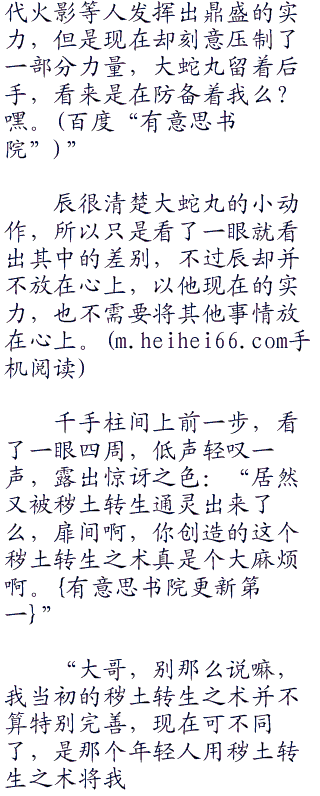 代火影等人发挥出鼎盛的实
力，但是现在却刻意压制了
一部分力量，大蛇丸留着后
手，看来是在防备着我么？
嘿。(百度“有意思书
院”)”
辰很清楚大蛇丸的小动
作，所以只是看了一眼就看
出其中的差别，不过辰却并
不放在心上，以他现在的实
力，也不需要将其他事情放
在心上。(m.heihei66.com手
机阅读)
千手柱间上前一步，看
了一眼四周，低声轻叹一
声，露出惊讶之色：“居然
又被秽土转生通灵出来了
么，扉间啊，你创造的这个
秽土转生之术真是个大麻烦
啊。{有意思书院更新第
一}”
“大哥，别那么说嘛，
我当初的秽土转生之术并不
算特别完善，现在可不同
了，是那个年轻人用秽土转
生之术将我